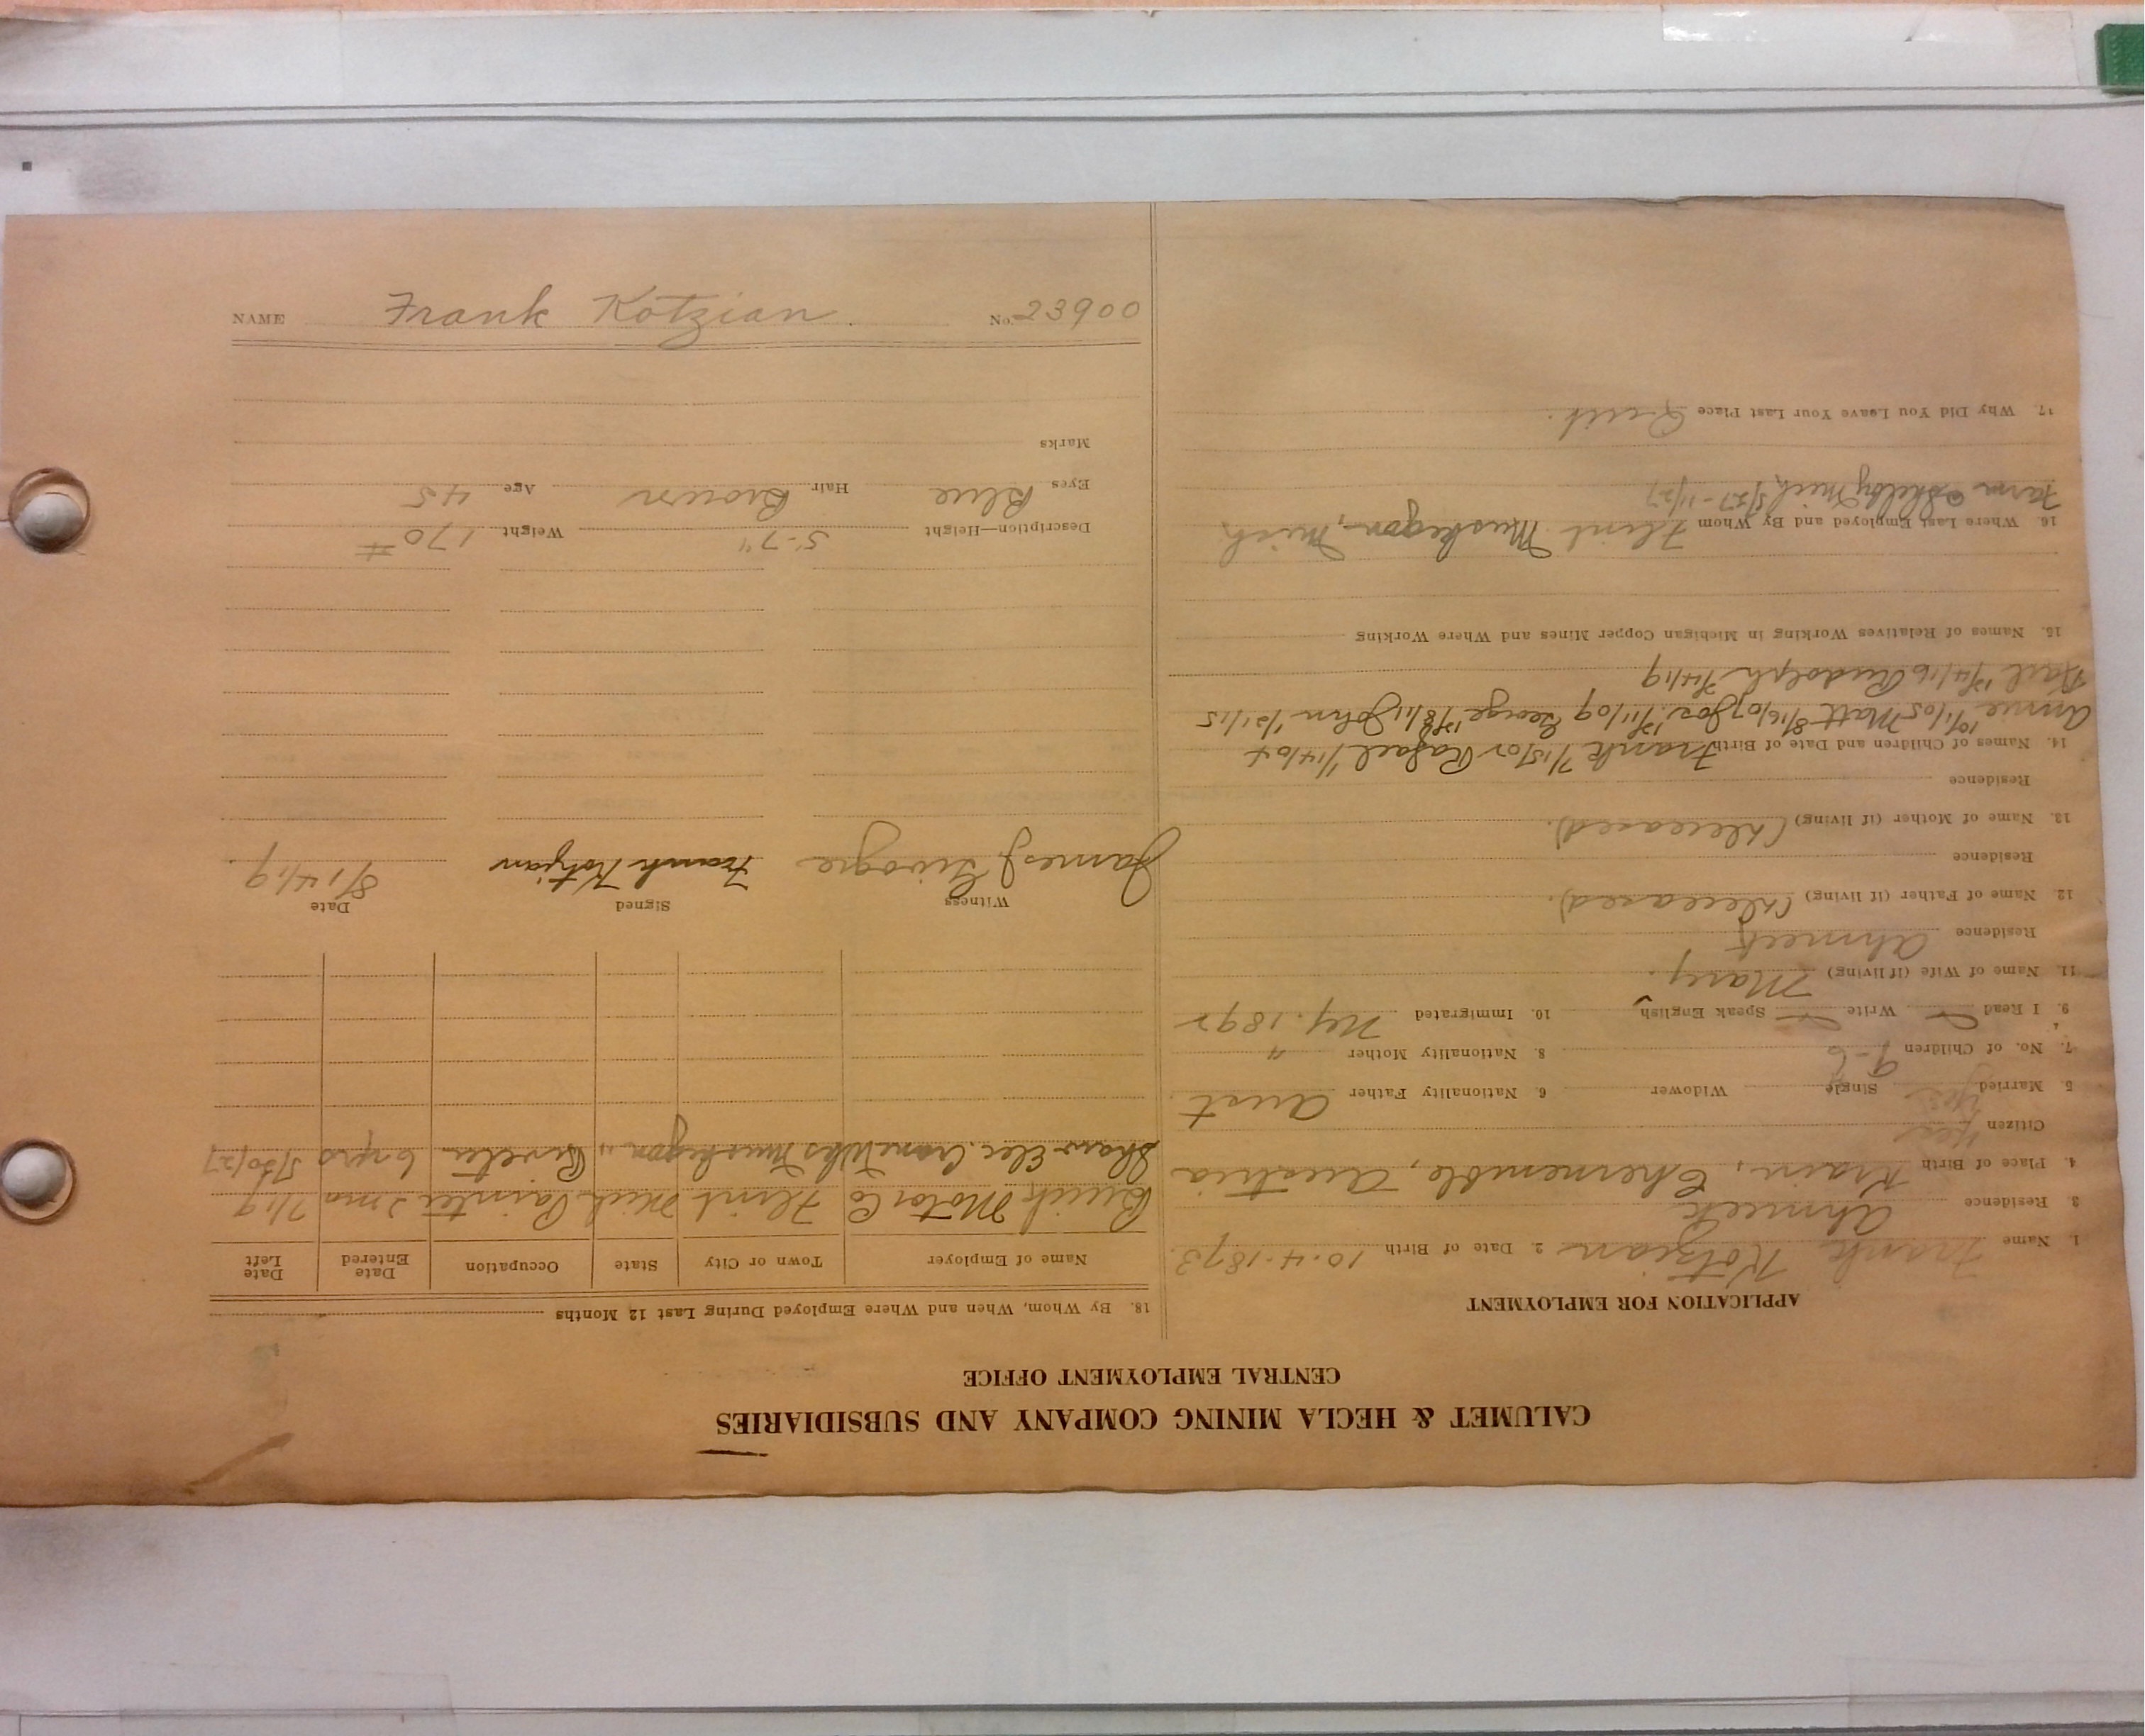 CALUMET & HECLA MINING COMPANY AND SUBSIDIARIES
CENTRAL EMPLOYMENT OFFICE
APPLICATION FOR EMPLOYMENT
1. Name Frank Kotzian 2. Date of Birth 10-4-1873.
3. Residence Ahmeek
4. Place of Birth Krain, Chernemble, Austria
Citizen Yes
5. Married Yes Single Widower 6. Nationality Father Aust
7. No. of Children 9-6 8. Nationality Mother "
9. I Read Write Speak English 10. Immigrated Ny. 1892
11. Name of Wife (if living) Mary.
Residence Ahmeek
12. Name of Father (if living) (Deceased).
Residence
13. Name of Mother (if living) (Deceased).
Residence
14. Names of Children and Date of Birth Frank 7/15/02 Rafael 1/14/04
Annie 10/1/05 Matt 8/16/07 Joe 12/11/09 George 12/8/11 John 1/21/15
Karl 12/4/16 Rudolph 2/14/19
15. Names of Relatives Working in Michigan Copper Mines and Where Working
16. Where Last Employed and By Whom Flint Muskegon, Mich
Farm Shelby Mich 5/27-11/27
17. Why Did You Leave Your Last Place Quit.
18. By Whom, When and Where Employed During Last 12 Months
Name of Employer Town or City State Occupation Date Entered Date Left
Buick Motor Co Flint Mich Painter 2 mo 7/19
Shaw Elec. Crane Wks Muskegon " Riveter 6 yrs 5/30/27
Witness Signed Date
James J Frank Kotzian 8/14/19.
Description—Height 5-7" Weight 170#
Eyes Blue Hair Brown Age 45
Marks
NAME Frank Kotzian. No. 23900